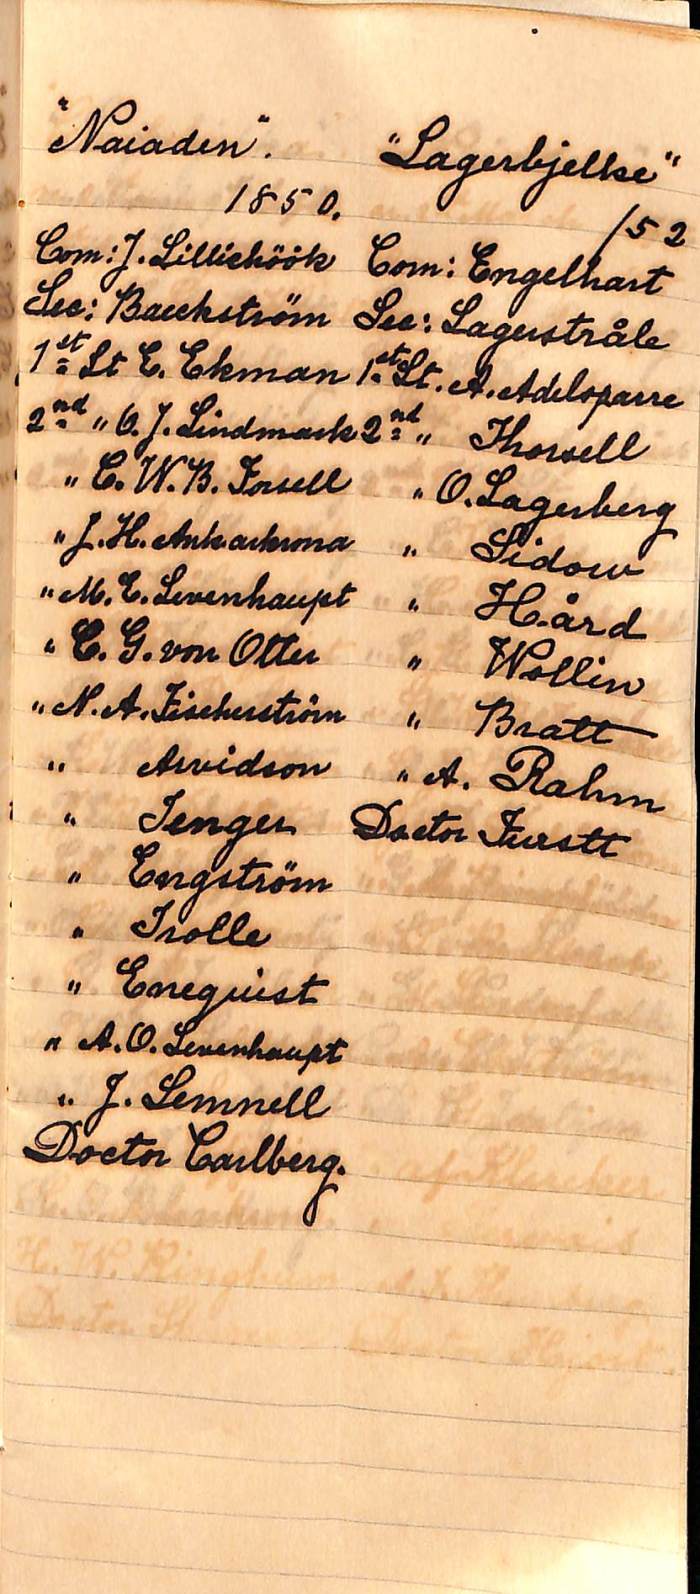 "Naiaden".
1850.
Com: J. Lilliehöök
Sec: Baeckström
1st Lt E. Ekman
2nd " O. J. Lindmark
" C. W. B. Forsell
" J. H. Ankarkrona
" M. E. Levenhaupt
" C. G. von Otter
" N. A. Fischerström
" Arvidson
" Tenger
" Engström
" Trolle
" Enequist
" A. O. Levenhaupt
" J. Lemnell
Doctor Carlberg.
"Lagerbjelke"
152
Com: Engelhart
Sec: Lagerstråle
1st Lt. A. Adelsparre
2nd " Thorsell
" O. Lagerberg
" Sidow
" Hård
" Wollin
" Bratt
" A. Rahm
Doctor Furstt